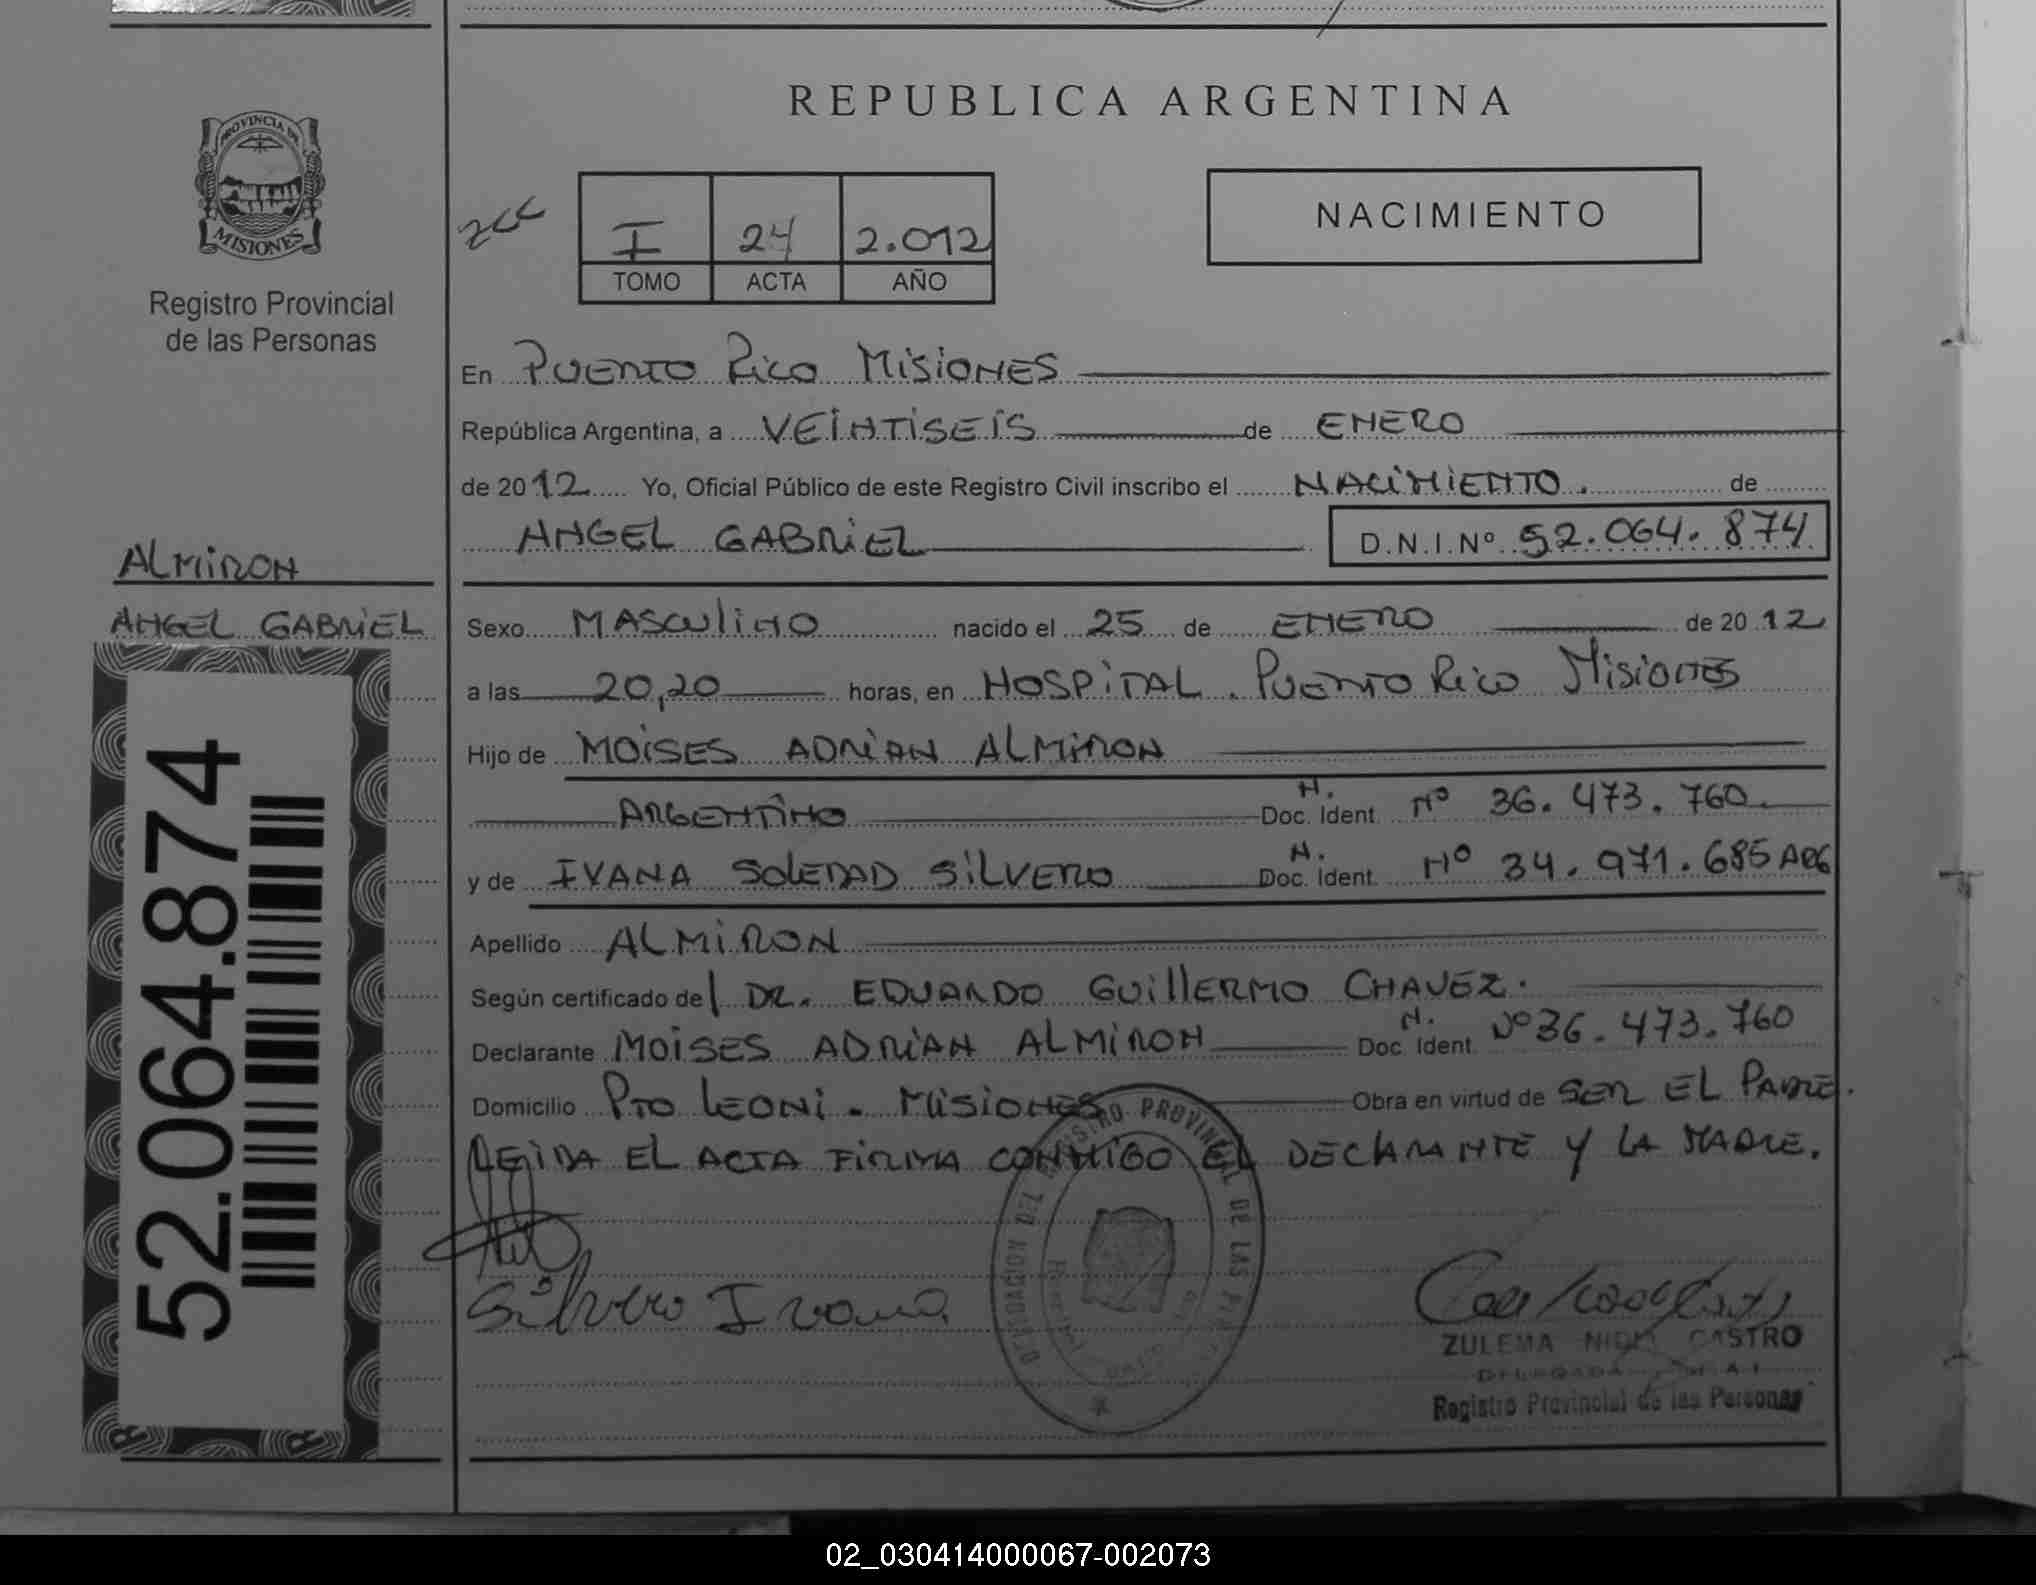 REPUBLICA ARGENTINA
PROVINCIA DE
MISIONES
Registro Provincial
de las Personas
NACIMIENTO
I 24 2.012
TOMO ACTA AÑO
En PUERTO RICO MISIONES
República Argentina, a VEINTISEIS de ENERO
de 2012 Yo, Oficial Público de este Registro Civil inscribo el NACIMIENTO. de
ANGEL GABRIEL D.N.I.Nº 52.064.874
ALMIRON
ANGEL GABRIEL
52.064.874
Sexo MASCULINO nacido el 25 de ENERO de 2012
a las 20,20 horas, en HOSPITAL. PUERTO RICO MISIONES
Hijo de MOISES ADRIAN ALMIRON
ARGENTINO N. Doc. Ident. Nº 36.473.760
y de IVANA SOLEDAD SILVERO N. Doc. Ident. Nº 34.971.685 ARG
Apellido ALMIRON
Según certificado del DR. EDUARDO GUILLERMO CHAVEZ.
Declarante MOISES ADRIAN ALMIRON N. Doc. Ident. Nº 36.473.760
Domicilio PTO LEONI. MISIONES Obra en virtud de SER EL PADRE.
LEIDA EL ACTA FIRMA CONMIGO EL DECLARANTE Y LA MADRE.
Silvero Ivana
DELEGACION DEL REGISTRO PROVINCIAL DE LAS
ZULEMA NIDIA CASTRO
DELEGADA
Registro Provincial de las Personas
02_030414000067-002073